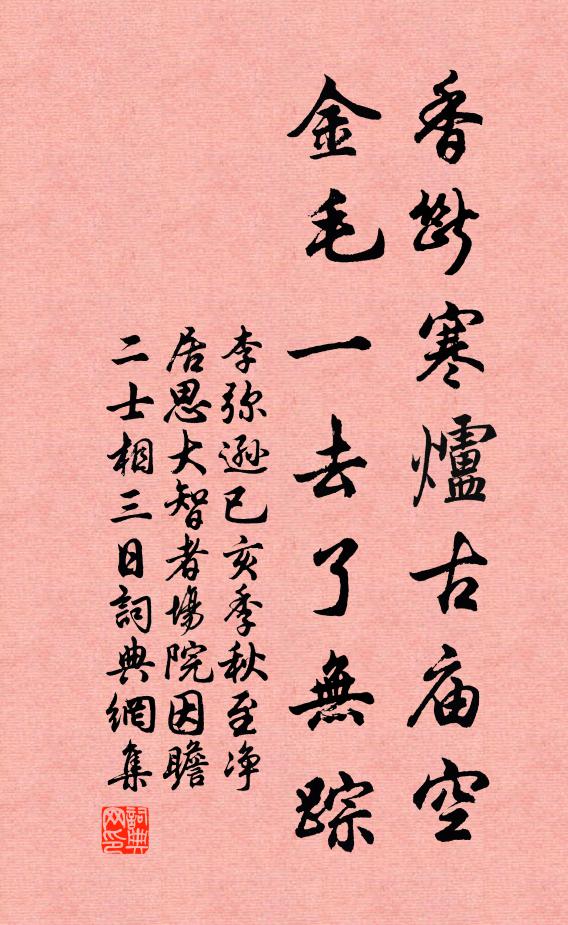 香斷寒爐古庙空
金毛一去了無踪
李弥逊已亥季秋至净
居思大智者場院因瞻
二士相三日詞典網集
詞典网印